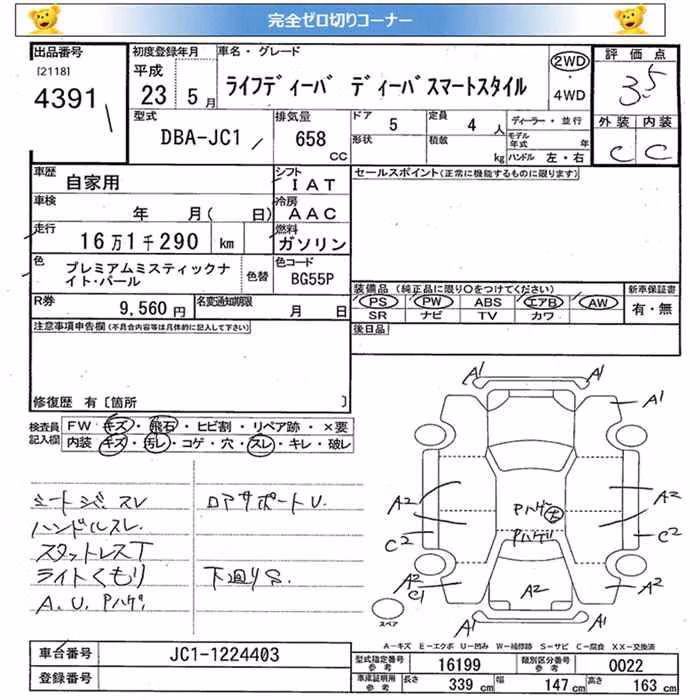 完全ゼロ切りコーナー
出品番号 初度登録年月 車名・グレード 2WD 評価点
[2118] 平成 ライフディーバ ディーバスマートスタイル ・ 3.5
4391 23 5月 4WD
型式 排気量 ドア 5 定員 4人 ディーラー・並行 外装 内装
DBA-JC1 658 CC 形状 積載 kg モデル年式 年 C C
ハンドル 左・右
車歴 自家用 シフト IAT セールスポイント(正常に機能するものに限ります)
車検 年 月( 日) 冷房 AAC
走行 16万1千290 km 燃料 ガソリン
色 プレミアムミスティックナイト・パール 色替 色コード BG55P
装備品(純正品に限り○をつけてください) 新車保証書
PS PW ABS エアB AW 有・無
SR ナビ TV カワ
R券 9,560円 名変通知期限 月 日
後日品
注意事項申告欄(不具合内容等は具体的に記入して下さい)
修復歴 有〔箇所 〕
検査員記入欄 FW キズ・飛石・ヒビ割・リペア跡・×要
内装 キズ・汚レ・コゲ・穴・スレ・キレ・破レ
シートジ.スレ ロアサポートU.
ハンドルスレ.
スタットレスT
ライトくもり 下廻りS.
A.U.Pハゲ
A1 A1
A1
A2 A2
Pハゲ 大
Pハゲ
C2 C2
A2 A2 A2
C1
A1 A1
スペア
A-キズ E-エクボ U-凹み W-補修跡 S-サビ C-腐食 XX-交換済
車台番号 JC1-1224403 型式指定番号 参考 16199 類別区分番号 参考 0022
登録番号 車庫証明用 参考 長さ 339 cm 幅 147 cm 高さ 163 cm